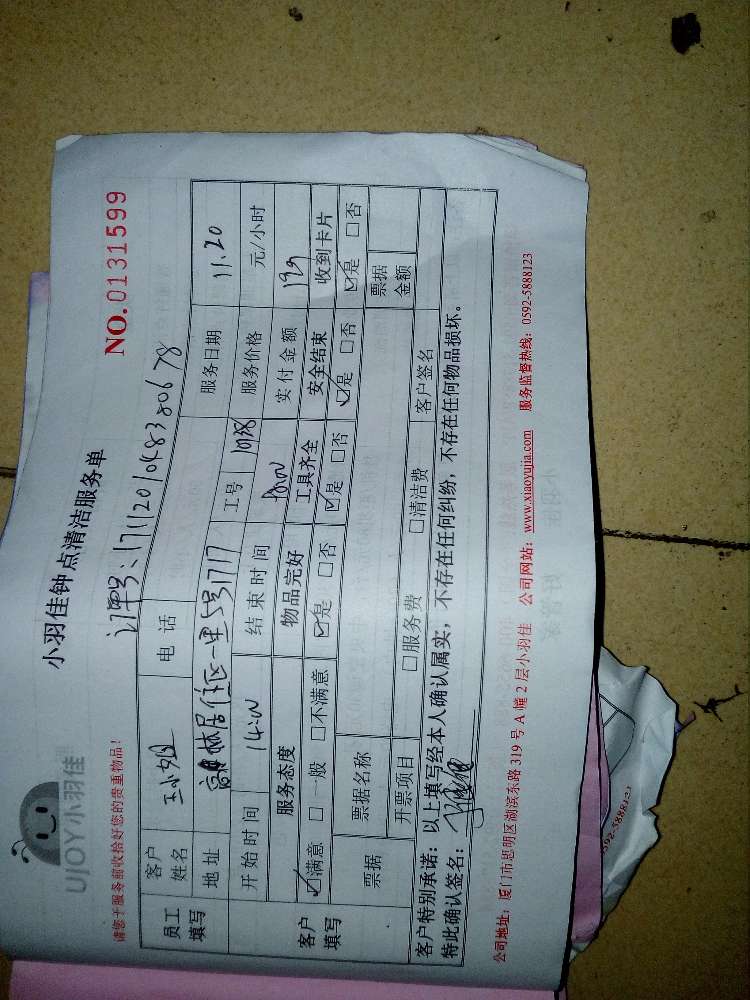 UJOY小羽佳
小羽佳钟点清洁服务单
NO.0131599
请您于服务前收拾好您的贵重物品！
订单号：17112010483380678
员工填写 客户姓名 王小姐 电话 服务日期 11.20
地址 高林居住区一里 1717 工号 服务价格 元/小时
开始时间 14:00 结束时间 实付金额
客户填写 服务态度 物品完好 工具齐全 安全结束 收到卡片
☑满意 □一般 □不满意 ☑是 □否 ☑是 □否 ☑是 □否 ☑是 □否
票据 票据名称 票据金额
开票项目 □服务费 □清洁费 客户签名
客户特别承诺：以上填写经本人确认属实，不存在任何纠纷，不存在任何物品损坏。
特此确认签名：
公司地址：厦门市思明区湖滨东路319号A幢2层小羽佳 公司网站：www.xiaoyujia.com 服务监督热线：0592-5888123
592-5888123